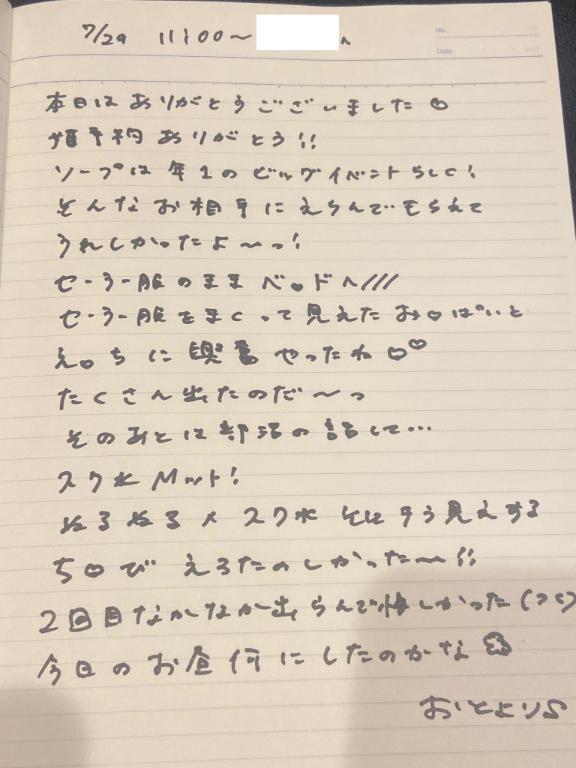 7/29 11:00〜 へ
No.
Date
本日はありがとうございました♡
指予約ありがとう!!
ソープは年1のビッグイベントらしく!
そんなお相手にえらんでもらえて
うれしかったよ〜っ!
セーラー服のままベ♡ドへ///
セーラー服をまくって見えたお♡ぱいと
え〇ちに興奮やったね♡♡
たくさん出たのだ〜っ
そのあとは部活の話して…
スク水Mット!
ぬるぬる×スク水 そにすう見えする
ち♡び えろたのしかった〜!!
2回目なかなか出らんで悔しかった(>_<)
今日のお昼何にしたのかな
おとより♪